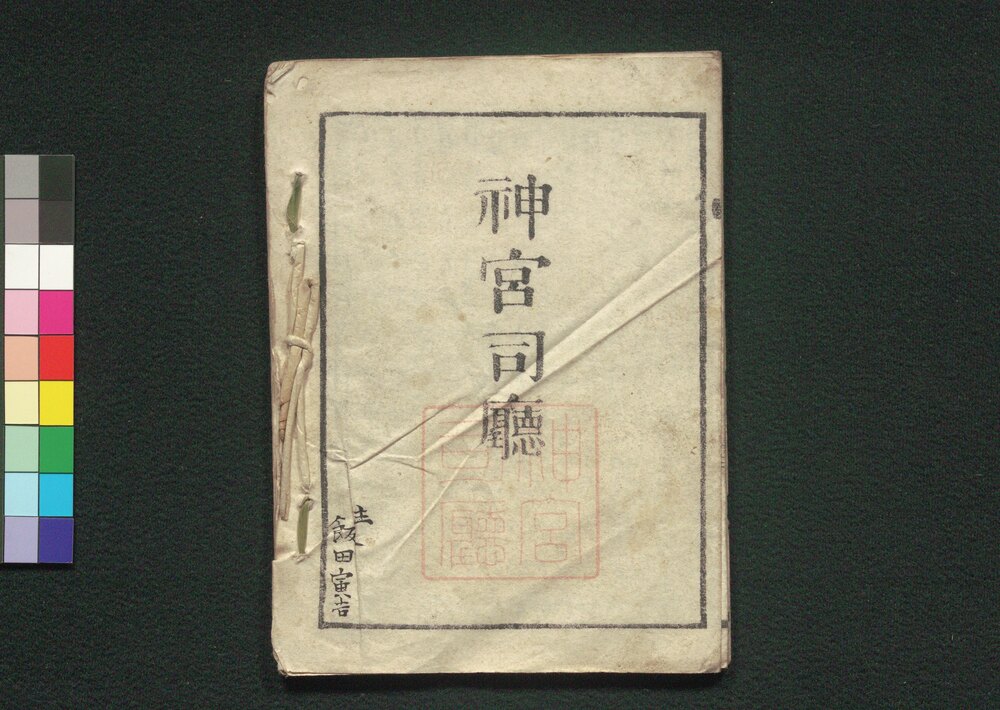 神宮司廳
神宮
司廳
主
飯田寅吉